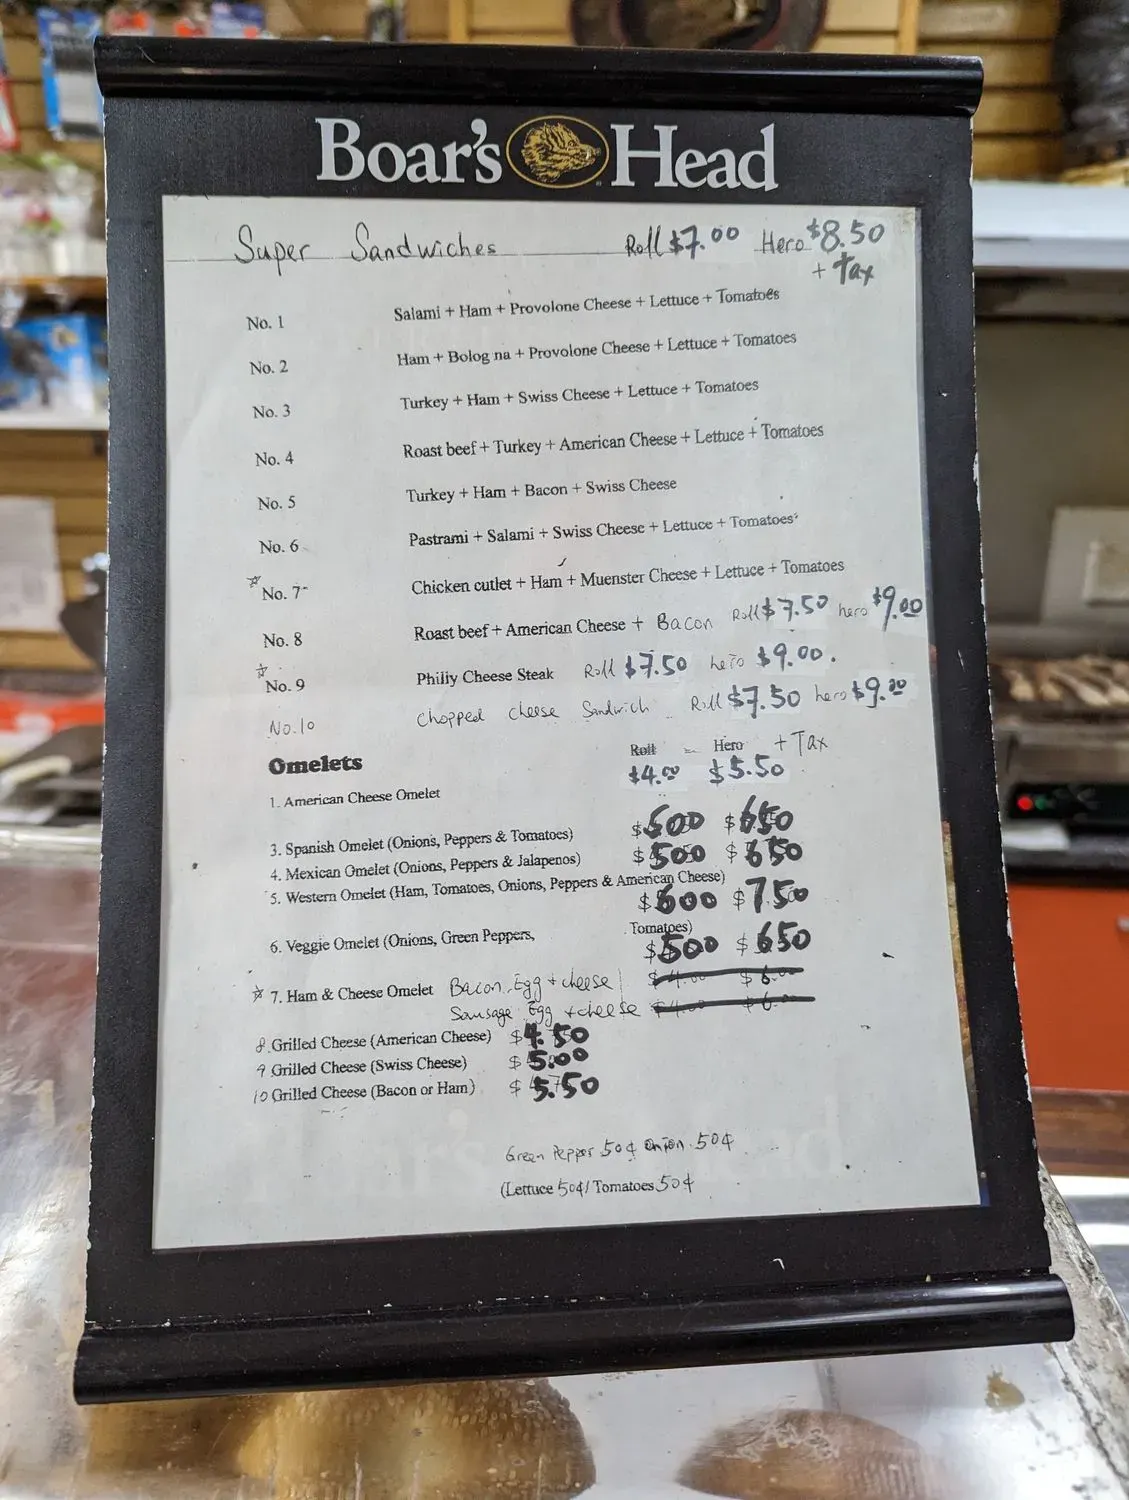 Boar's Head
Super Sandwiches Roll $7.00 Hero $8.50
+ Tax
No. 1 Salami + Ham + Provolone Cheese + Lettuce + Tomatoes
No. 2 Ham + Bolog na + Provolone Cheese + Lettuce + Tomatoes
No. 3 Turkey + Ham + Swiss Cheese + Lettuce + Tomatoes
No. 4 Roast beef + Turkey + American Cheese + Lettuce + Tomatoes
No. 5 Turkey + Ham + Bacon + Swiss Cheese
No. 6 Pastrami + Salami + Swiss Cheese + Lettuce + Tomatoes
☆ No. 7 Chicken cutlet + Ham + Muenster Cheese + Lettuce + Tomatoes
No. 8 Roast beef + American Cheese + Bacon Roll $7.50 hero $9.00
☆ No. 9 Philiy Cheese Steak Roll $7.50 hero $9.00.
No.10 Chopped cheese Sandwich Roll $7.50 hero $9.00
Omelets Roll - Hero + Tax
$4.00 $5.50
1. American Cheese Omelet
3. Spanish Omelet (Onions, Peppers & Tomatoes) $500 $650
4. Mexican Omelet (Onions, Peppers & Jalapenos) $500 $650
5. Western Omelet (Ham, Tomatoes, Onions, Peppers & American Cheese)
$600 $750
6. Veggie Omelet (Onions, Green Peppers, Tomatoes)
$500 $650
☆ 7. Ham & Cheese Omelet Bacon Egg + cheese $4.00 $6.00
Sausage Egg + cheese $4.00 $6.00
8. Grilled Cheese (American Cheese) $4.50
9 Grilled Cheese (Swiss Cheese) $5.00
10 Grilled Cheese (Bacon or Ham) $5.50
Green Pepper 50¢ Onion 50¢
(Lettuce 50¢/ Tomatoes 50¢